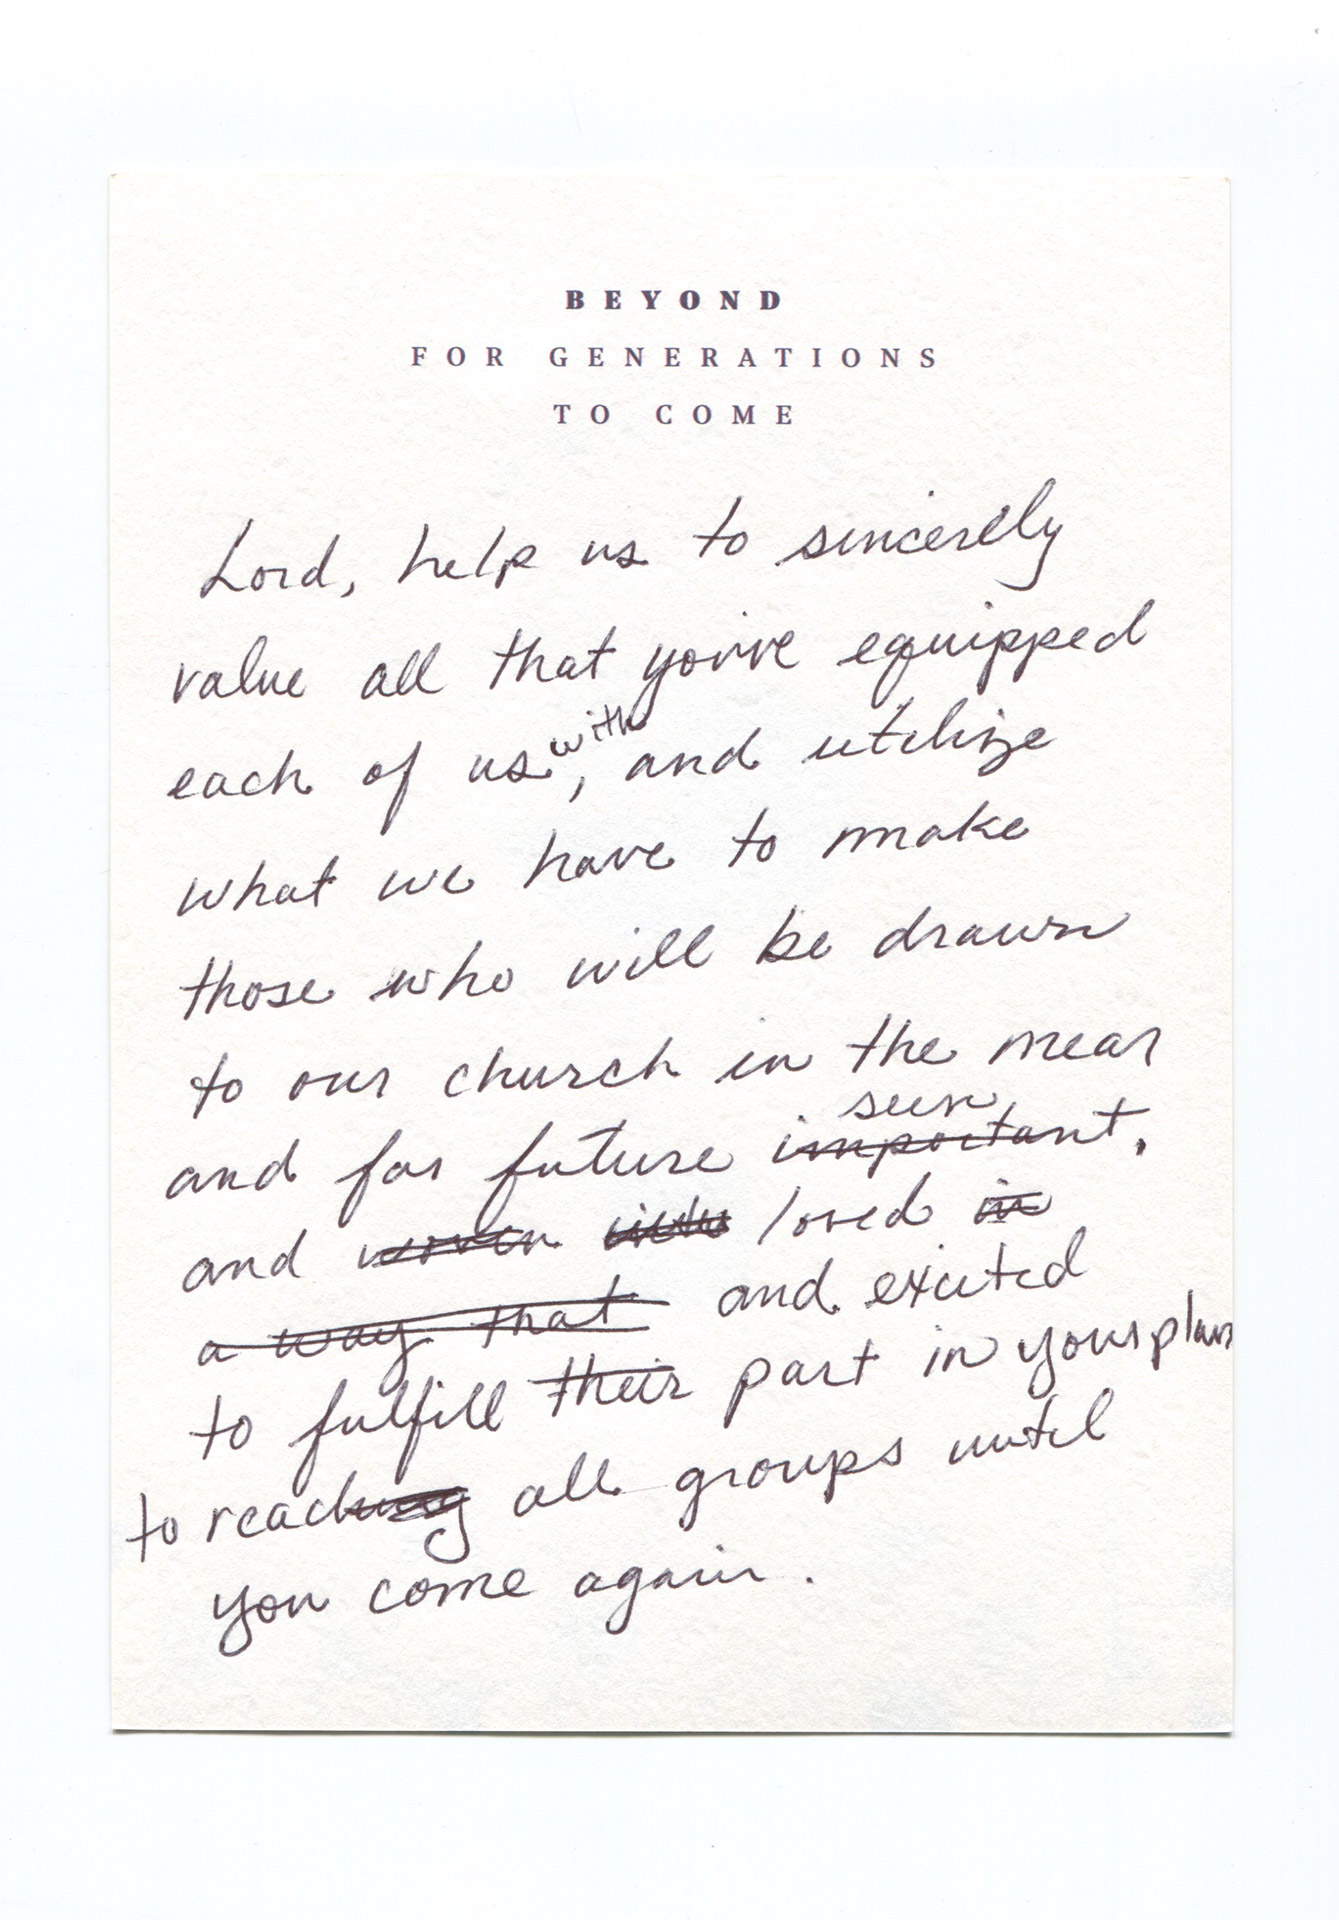 BEYOND
FOR GENERATIONS
TO COME
Lord, help us to sincerely
value all that you've equipped
each of us with, and utilize
what we have to make
those who will be drawn
to our church in the near
and far future seen
important,
and woven into loved in
a way that and excited
to fulfill their part in your plan
to reaching all groups until
you come again.